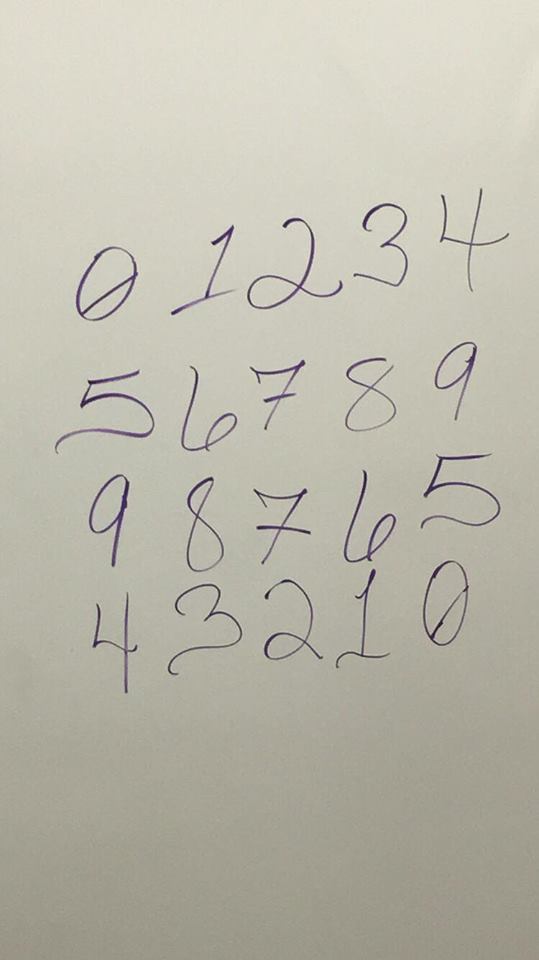 0 1 2 3 4
5 6 7 8 9
9 8 7 6 5
4 3 2 1 0